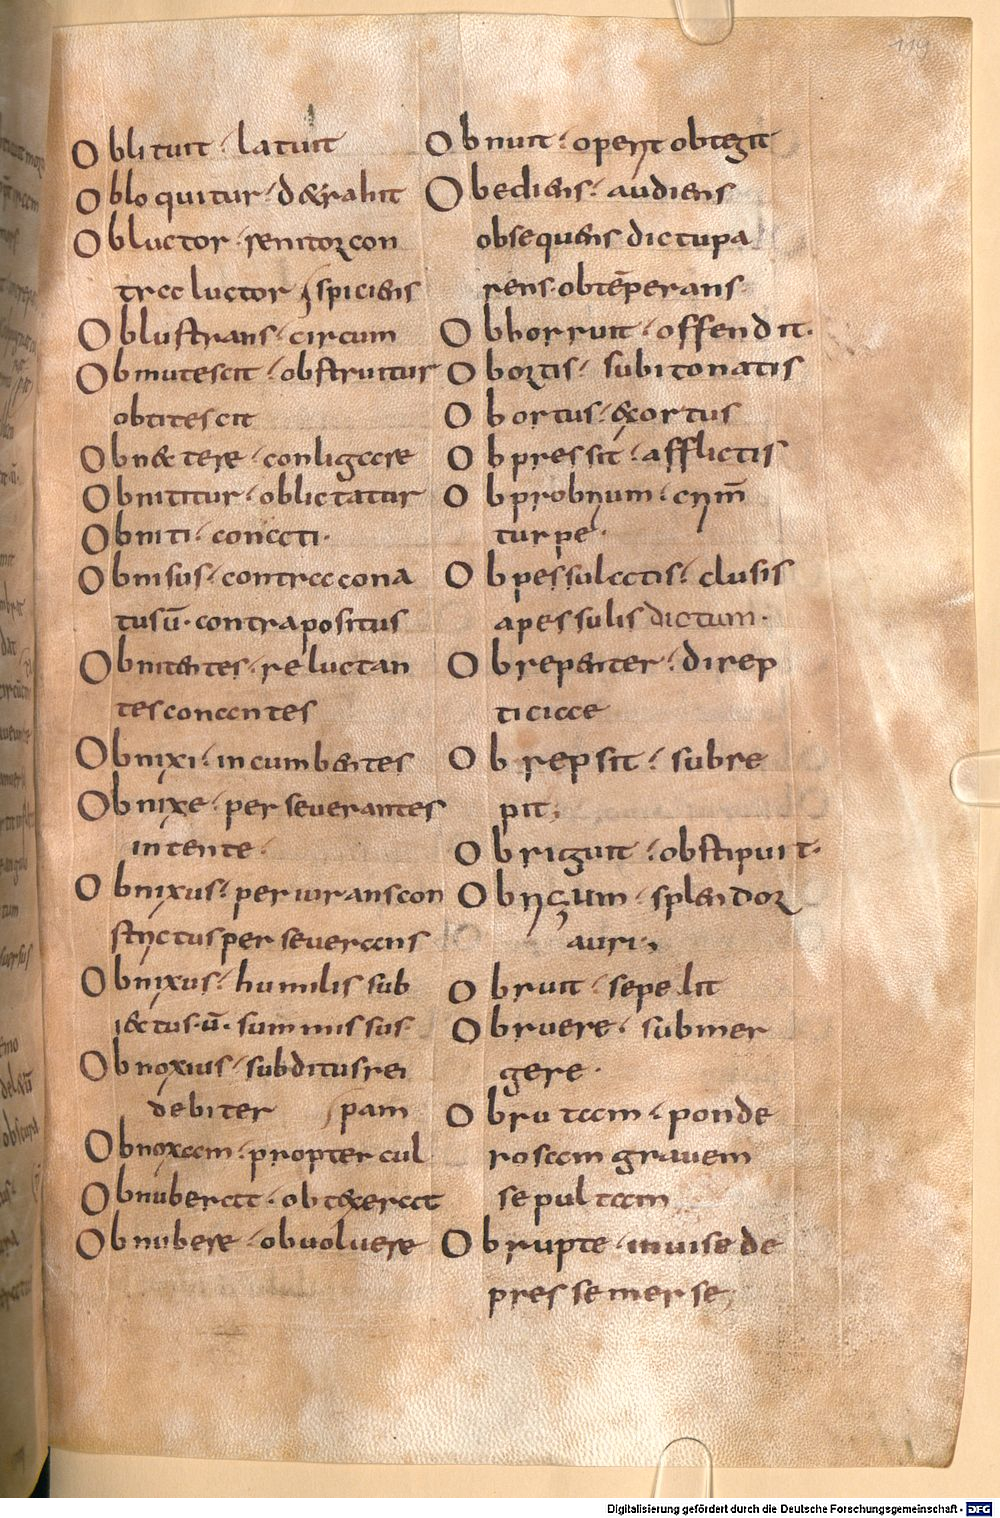 119
Oblituit · latuit
Obloquitur · detrahit
Obluctor · renitor con
tra luctor / spiciens
Oblustrans · circum
Obmutescit · obstruitur
obtitescit
Obnectere · conligare
Obnititur · oblictatur
Obniti · conati ·
Obnisus · contra cona
tus ū · contrapositus
Obnitentes · reluctan
tes conantes
Obnixi · incumbentes
Obnixe · perseverantes
intente ·
Obnixus · per uirans con
strictus perseverans
Obnixus · humilis sub
iectus · ū · summissus
Obnoxius · subditus rei
debiter / pam
Obnoxam · propter cul
Obnuberat · obtexerat
Obnubere · obuoluere
Obnuit · operit obtegit
Obediens · audiens
obsequens dictu pa
rens · obtēperans
Obhorruit · offendit ·
Obortis · subito natis
Obortus · exortus
Obpressit · afflictis
Obprobrium · crim̄
turpe ·
Obpessulatis · clusis
a pessulis dictum ·
Obrepenter · direp
ticiae
Obrepsit · subre
pit ;
Obriguit · obstipuit ·
Obriçum · splendor
auri ·,
Obruit · sepelit
Obruere · submer
gere ·
Obrutam · ponde
rosam grauem
sepultam
Obrupte · inuise de
presse merse ;
Digitalisierung gefördert durch die Deutsche Forschungsgemeinschaft - DFG